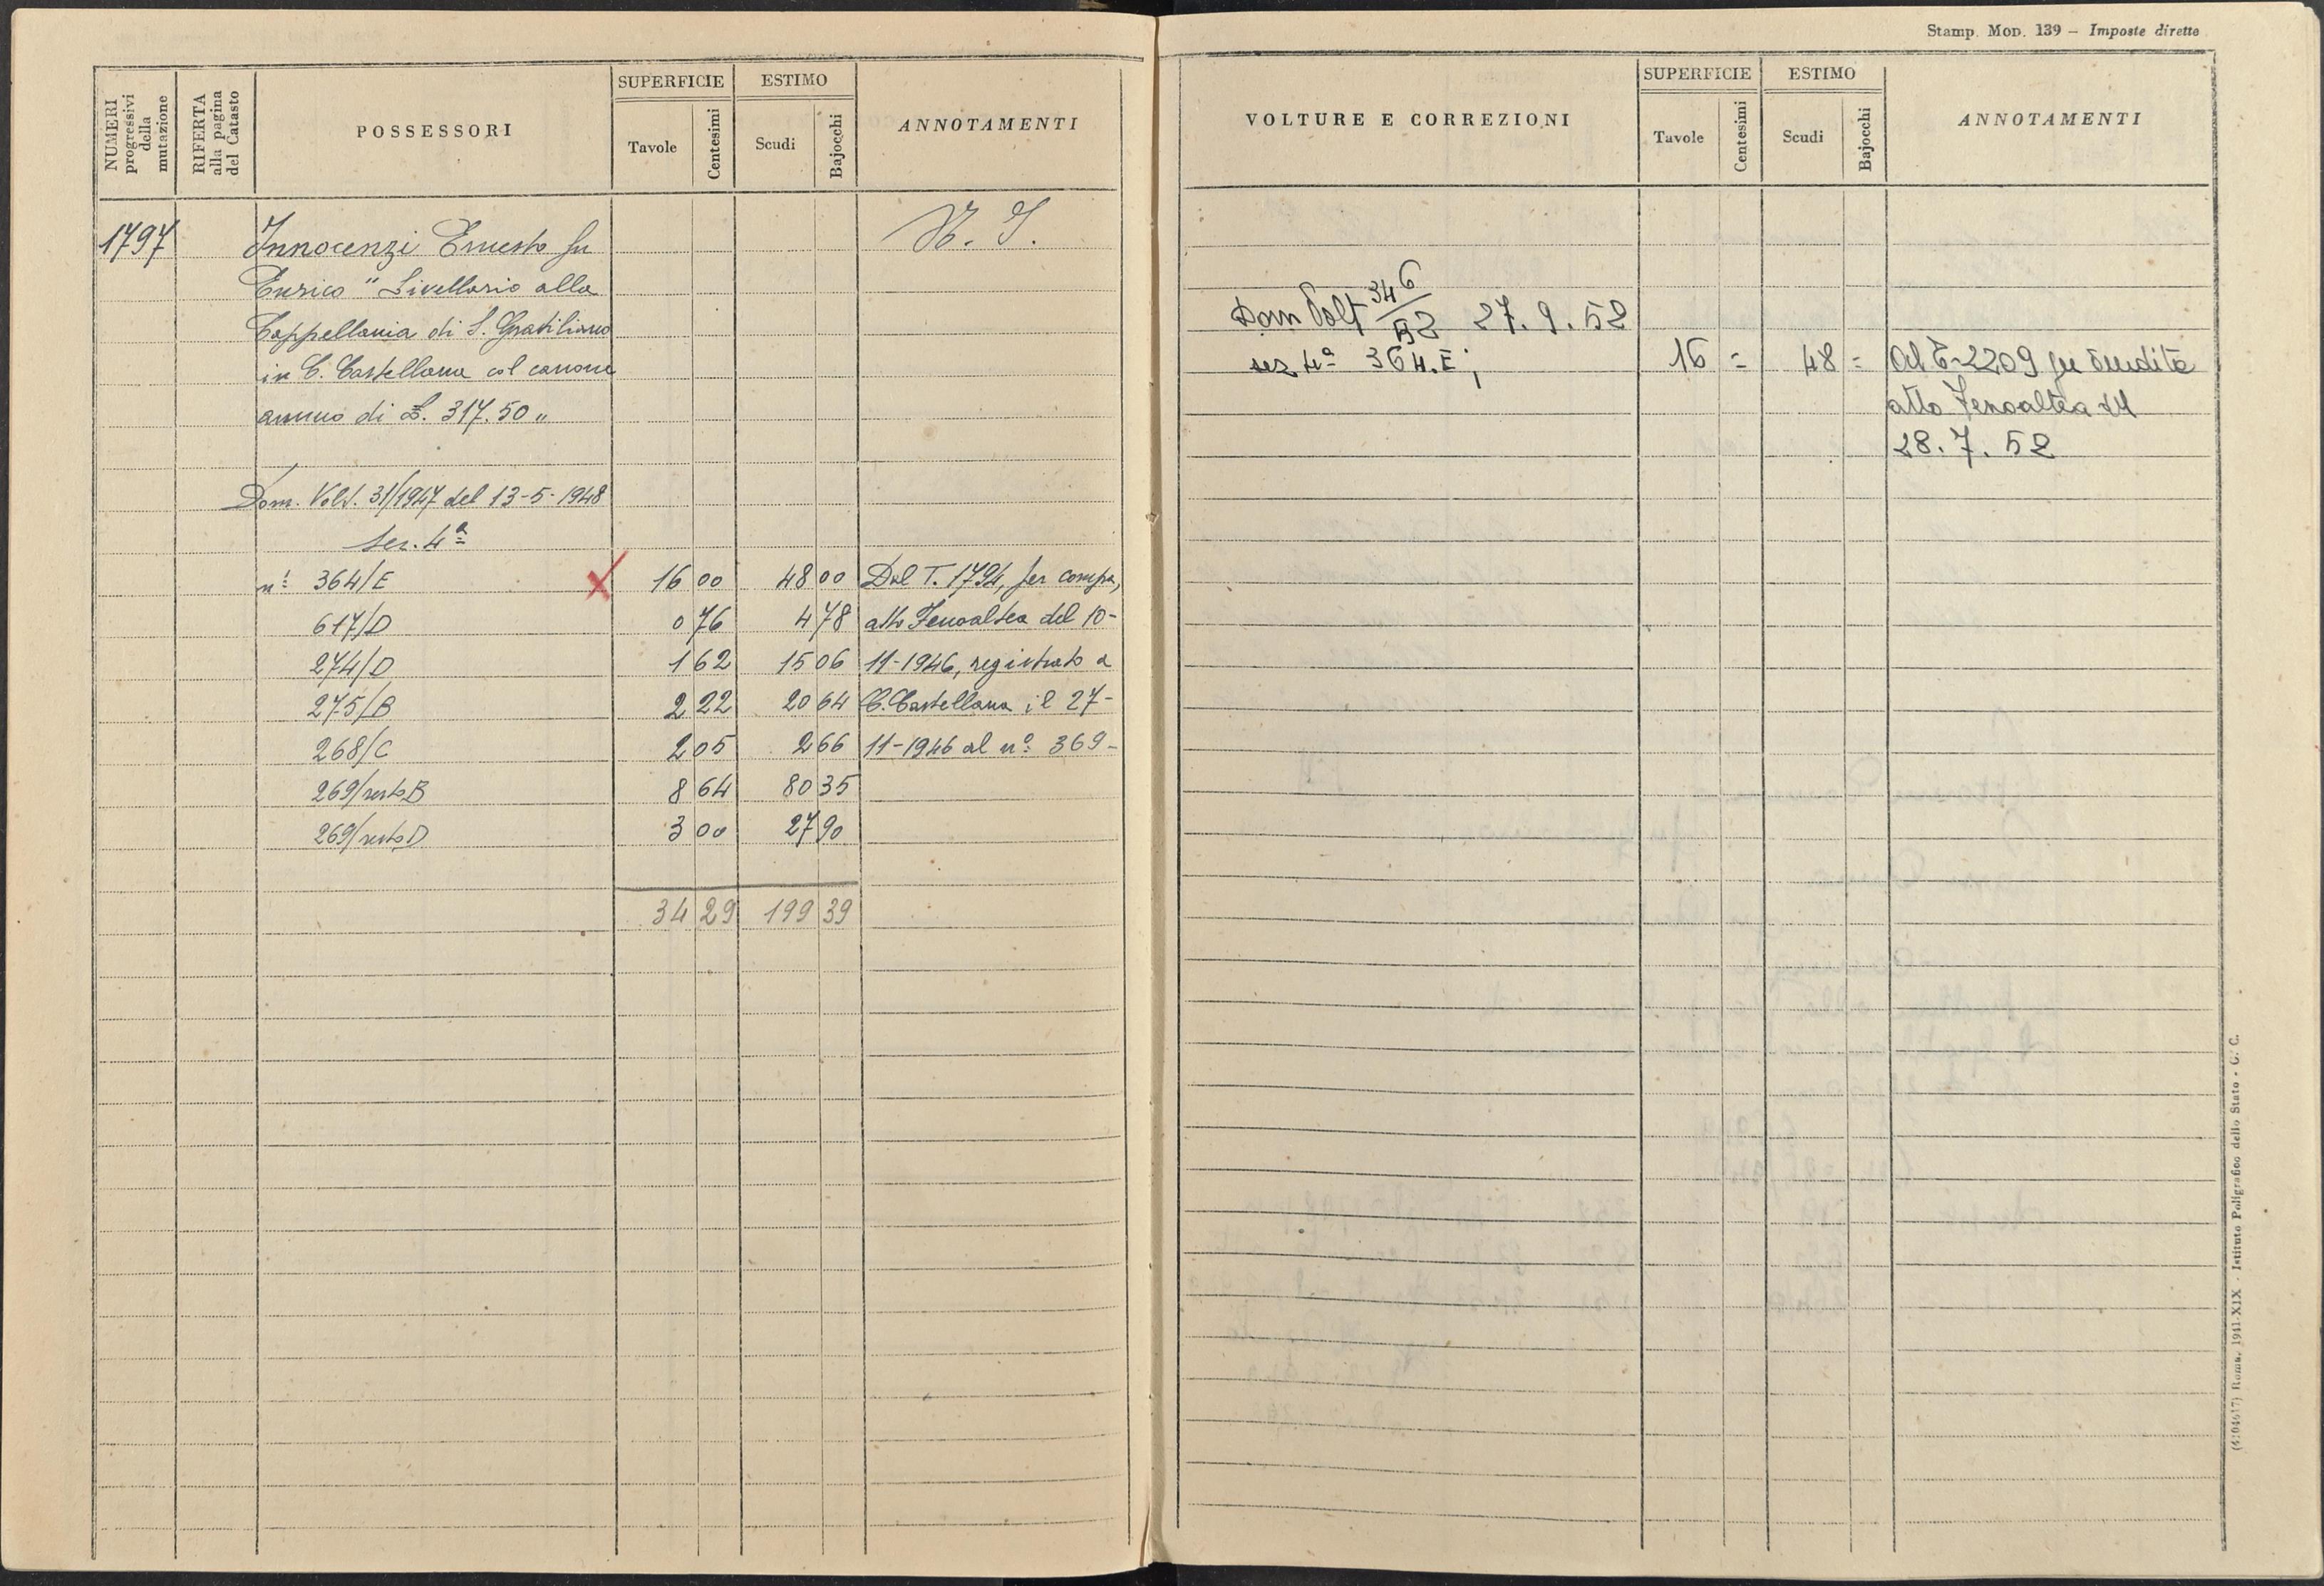 NUMERI progressivi della mutazione
RIFERTA alla pagina del Catasto
POSSESSORI
SUPERFICIE
Tavole
Centesimi
ESTIMO
Scudi
Bajocchi
ANNOTAMENTI
1797 Innocenzi Ernesto fu
Enrico " Livellario alla
Cappellania di S. Gratiliano
in C. Castellana col canone
annuo di L. 317.50 "
Dom. Volt. 31/1947 del 13-5-1948
Sez. 4ª
n! 364/E 16 00 48 00 Dal T. 1794, per compa,
617/D 0 76 4 78 atto Fenoaltea del 10-
274/D 1 62 15 06 11-1946, registrato a
275/B 2 22 20 64 C. Castellana il 27-
268/C 2 05 2 66 11-1946 al nº 369-
269/resto B 8 64 80 35
269/resto D 3 00 27 90
34 29 199 39
Stamp. Mod. 139 – Imposte dirette
VOLTURE E CORREZIONI
SUPERFICIE
Tavole
Centesimi
ESTIMO
Scudi
Bajocchi
ANNOTAMENTI
Dom Volt 346/52 27.9.52
sez 4ª 364.E; 16 = 48 = Al T-2209 per vendita
atto Fenoaltea del
28.7.52
(4104617) Roma, 1941-XIX - Istituto Poligrafico dello Stato - G. C.